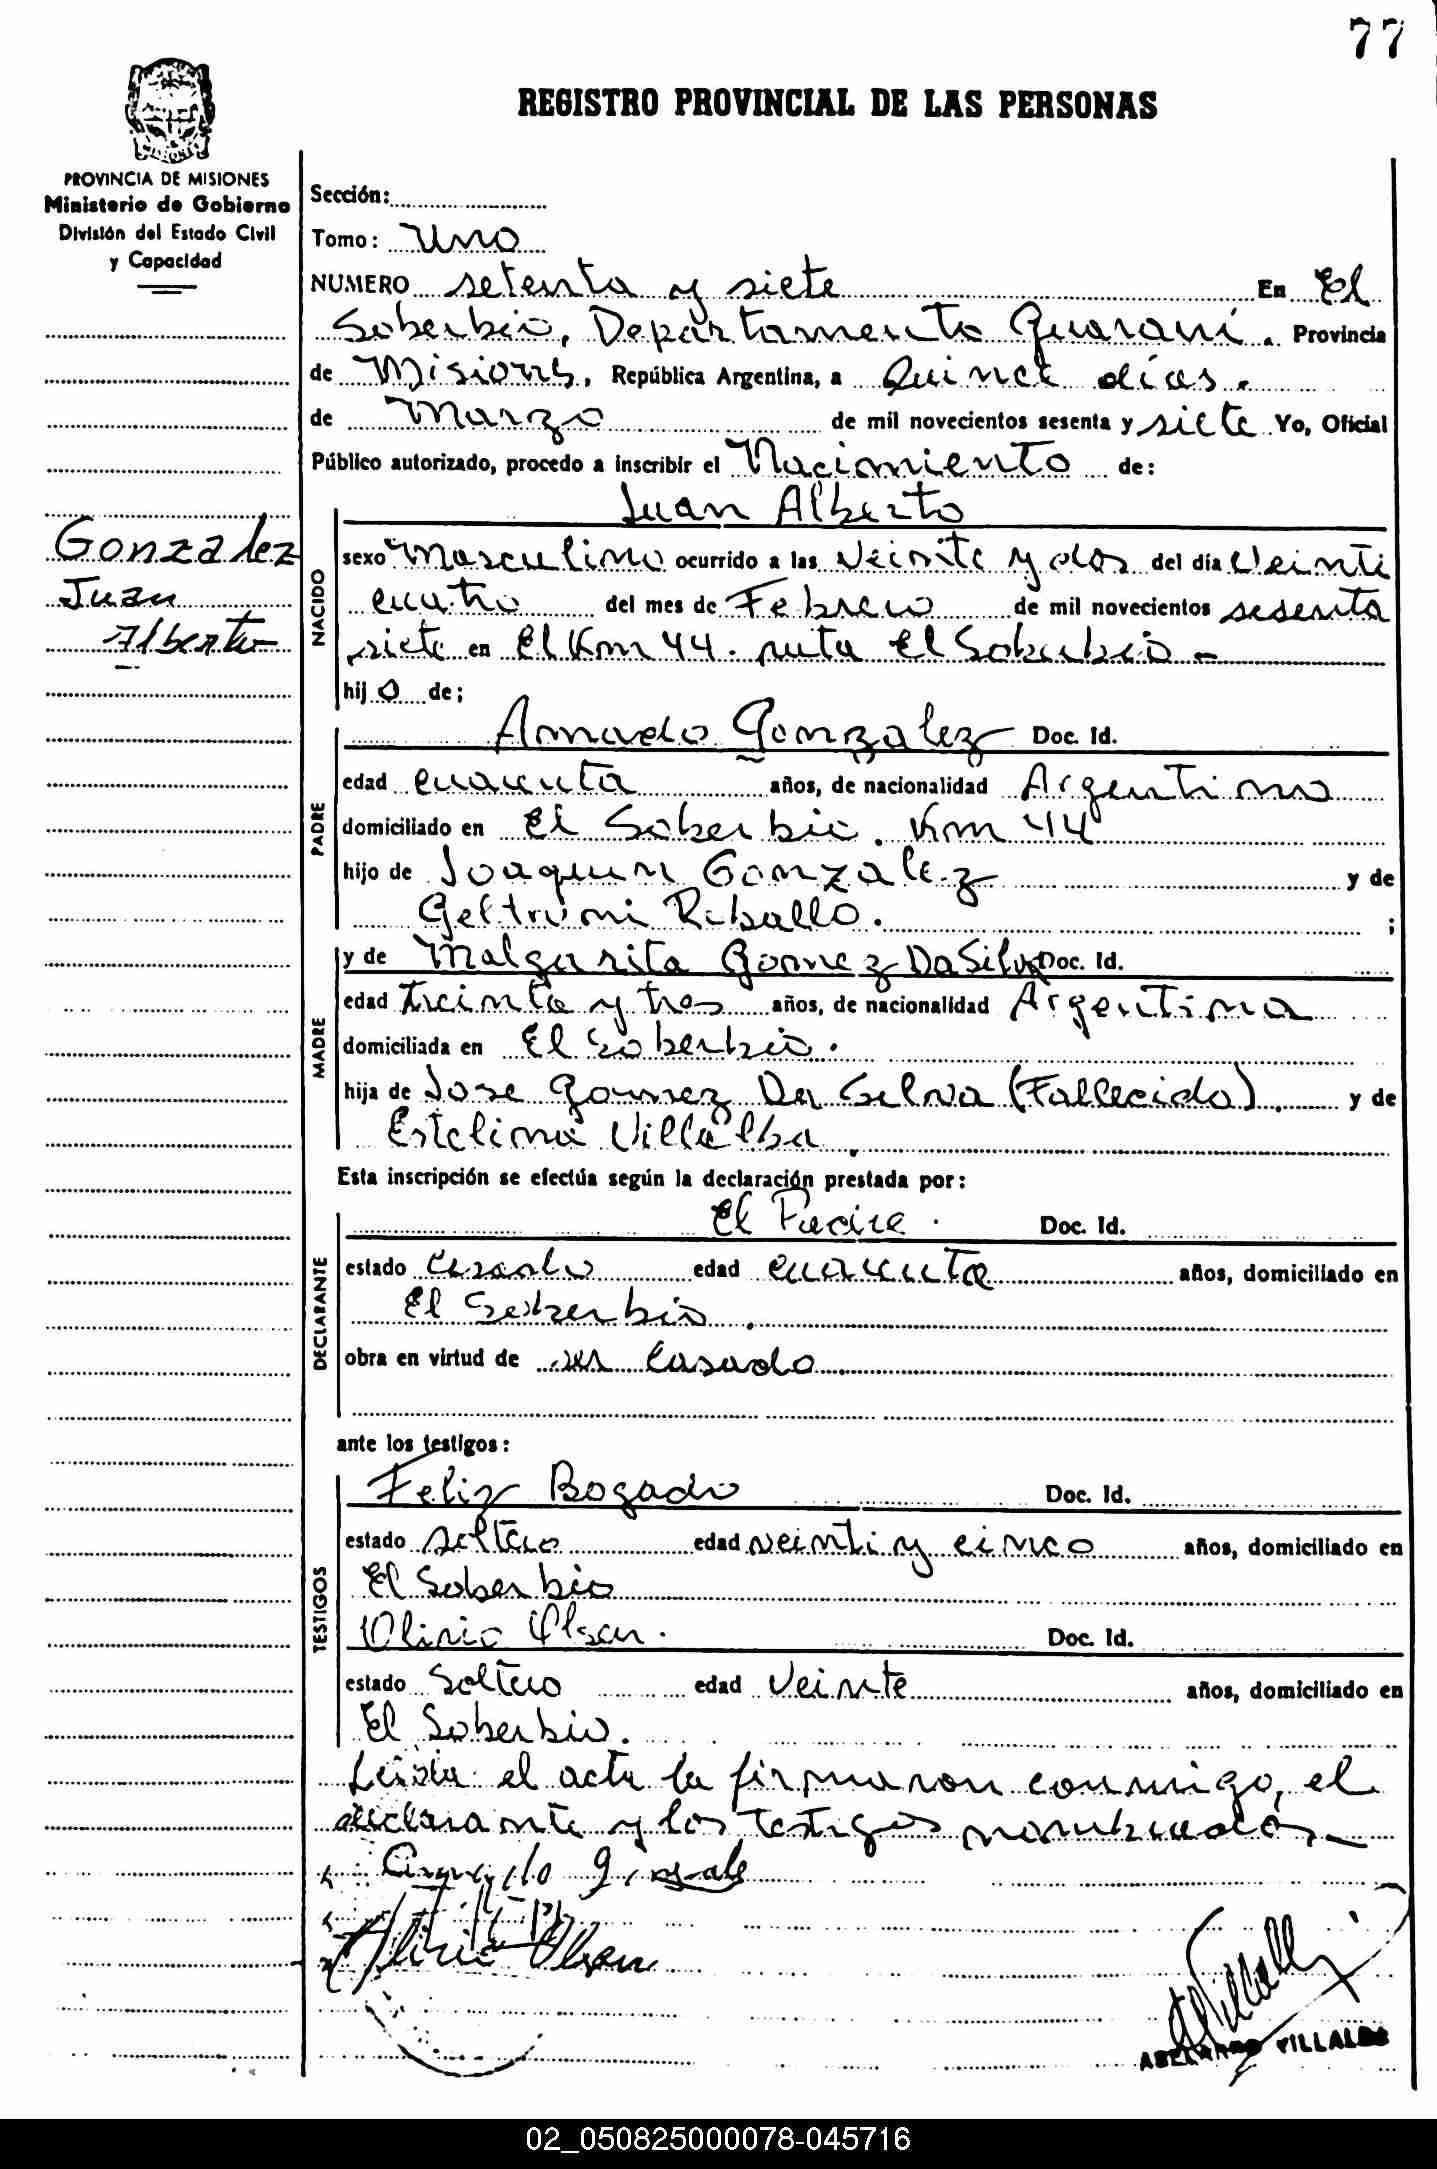 77
REGISTRO PROVINCIAL DE LAS PERSONAS
PROVINCIA DE MISIONES
Ministerio de Gobierno
División del Estado Civil
y Capacidad
Gonzalez
Juan
Alberto
Sección:
Tomo: Uno
NUMERO setenta y siete En El
Soberbio, Departamento Guaraní. Provincia
de Misiones, República Argentina, a Quince días.
de Marzo de mil novecientos sesenta y siete Yo, Oficial
Público autorizado, procedo a inscribir el Nacimiento de:
NACIDO
Juan Alberto
sexo masculino ocurrido a las veinte y dos del día veinti
cuatro del mes de Febrero de mil novecientos sesenta
siete en El Km 44. ruta El Soberbio -
hijo de;
PADRE
Amado Gonzalez Doc. Id.
edad cuarenta años, de nacionalidad Argentino
domiciliado en El Soberbio. Km 44
hijo de Joaquin Gonzalez y de
Geltruni Riballo. ;
MADRE
y de Malgarita Gomez DaSilva Doc. Id.
edad treinta y tres años, de nacionalidad Argentina
domiciliada en El Soberbio.
hija de Jose Gomez Da Silva (Fallecido) y de
Estelina Villalba
Esta inscripción se efectúa según la declaración prestada por:
DECLARANTE
El Padre. Doc. Id.
estado casado edad cuarenta años, domiciliado en
El Soberbio.
obra en virtud de ser Casado
ante los testigos:
TESTIGOS
Feliz Bogado Doc. Id.
estado soltero edad veinti y cinco años, domiciliado en
El Soberbio
Olirio Olsen. Doc. Id.
estado Soltero edad Veinte años, domiciliado en
El Soberbio.
Leida el acta la firmaron conmigo, el
declarante y los testigos nombrados.-
Olirio Olsen
ABELARDO VILLALBA
02_050825000078-045716